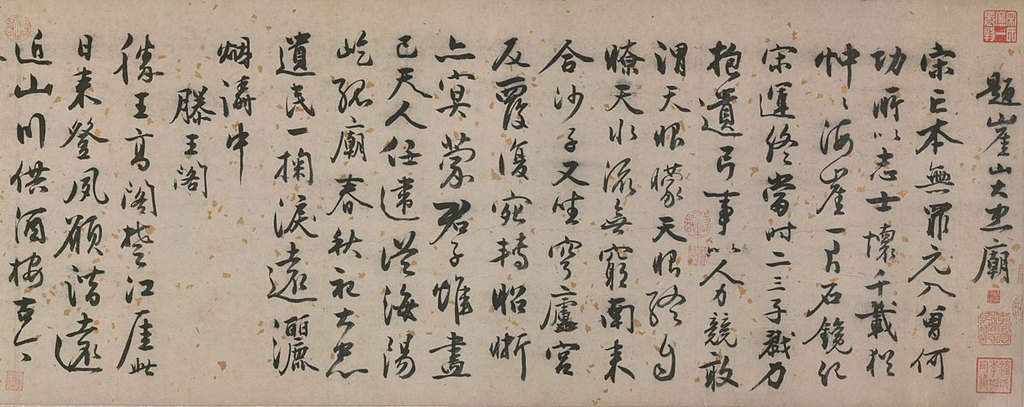 題崖山大忠廟
宋亡本無罪元入曾何
功所以志士懷千載猶
忡〻海崖一片石鐫紀
宋運終當時二三子戮力
抱遺弓事以人力競敢
謂天眼矇天眼終自
瞭天水流無窮南來
合沙子又生穹廬宮
反覆復宛轉昭晰
亦冥蒙君子惟盡
己天人任違從海陽
屹孤廟春秋祀大忠
遺民一掬淚遠灑
烟濤中
滕王閣
滕王高閣楚江厓此
日來登夙願諧遠
近山川供酒椀古今